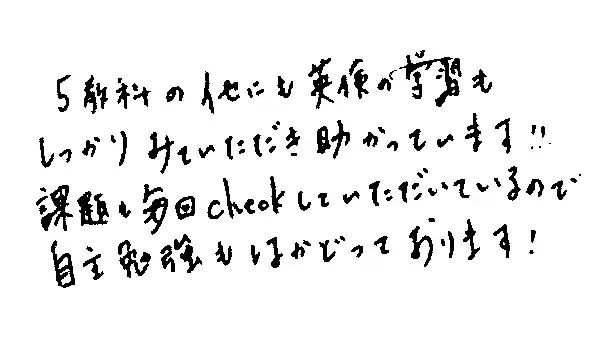 5教科の他にも英検の学習も
しっかりみていただき助かっています!!
課題も毎回checkしていただいているので
自主勉強もはかどっております!